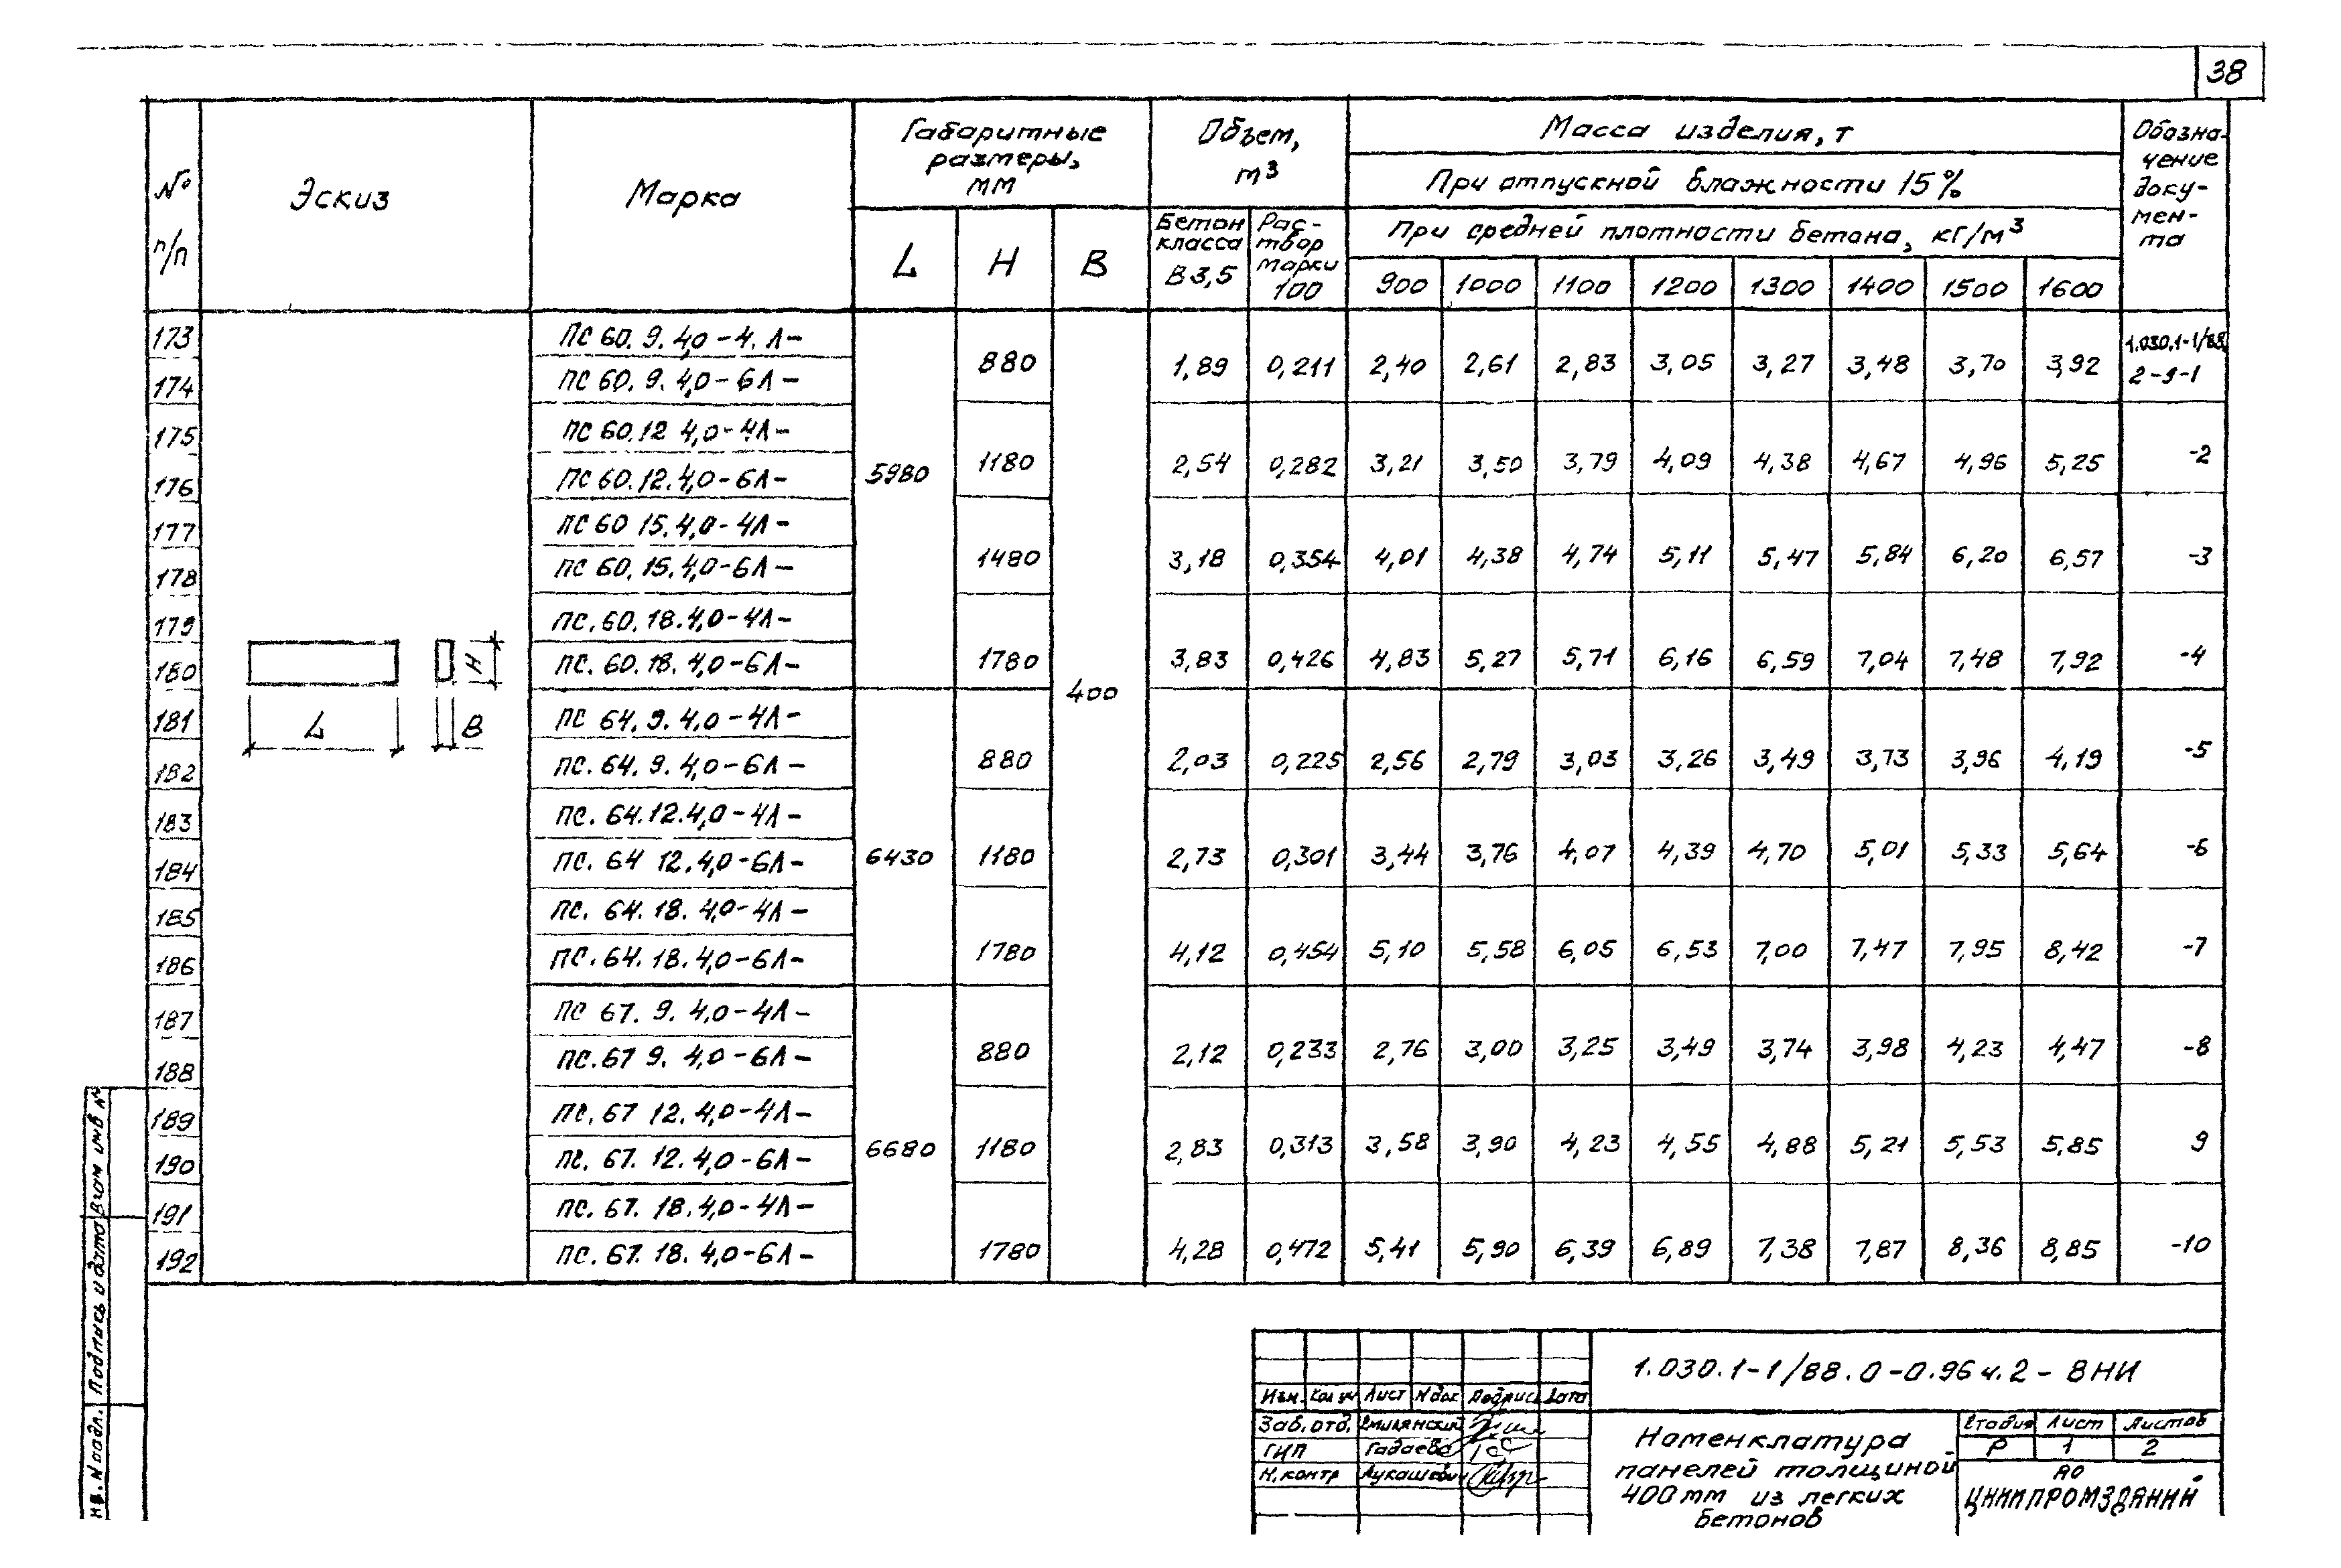 38
№ п/п
Эскиз
Марка
Габаритные размеры, мм
Объем, м³
Масса изделия, т
Обозна-
чение
доку-
мен-
та
При отпускной влажности 15%
При средней плотности бетона, кг/м³
L H B
Бетон класса В3,5
Рас-
твор
марки
100
900 1000 1100 1200 1300 1400 1500 1600
173 ПС 60. 9. 4,0 - 4. Л -
880 1,89 0,211 2,40 2,61 2,83 3,05 3,27 3,48 3,70 3,92 1.030.1-1/88. 2-9-1
174 ПС 60. 9. 4,0 - 6Л -
175 ПС 60.12 4,0 - 4Л -
5980 1180 2,54 0,282 3,21 3,50 3,79 4,09 4,38 4,67 4,96 5,25 -2
176 ПС 60.12.4,0 - 6Л -
177 ПС 60 15.4,0 - 4Л -
1480 3,18 0,354 4,01 4,38 4,74 5,11 5,47 5,84 6,20 6,57 -3
178 ПС 60.15.4,0 - 6Л -
179 ПС. 60.18.4,0 - 4Л -
1780 3,83 0,426 4,83 5,27 5,71 6,16 6,59 7,04 7,48 7,92 -4
180 ПС. 60.18. 4,0 - 6Л -
400
H
L B
181 ПС 64. 9. 4,0 - 4Л -
880 2,03 0,225 2,56 2,79 3,03 3,26 3,49 3,73 3,96 4,19 -5
182 ПС. 64. 9. 4,0 - 6Л -
183 ПС. 64.12.4,0 - 4Л -
6430 1180 2,73 0,301 3,44 3,76 4,07 4,39 4,70 5,01 5,33 5,64 -6
184 ПС. 64 12. 4,0 - 6Л -
185 ПС. 64. 18. 4,0 - 4Л -
1780 4,12 0,454 5,10 5,58 6,05 6,53 7,00 7,47 7,95 8,42 -7
186 ПС. 64. 18. 4,0 - 6Л -
187 ПС 67. 9. 4,0 - 4Л -
880 2,12 0,233 2,76 3,00 3,25 3,49 3,74 3,98 4,23 4,47 -8
188 ПС. 67 9. 4,0 - 6Л -
189 ПС. 67 12. 4,0 - 4Л -
6680 1180 2,83 0,313 3,58 3,90 4,23 4,55 4,88 5,21 5,53 5,85 9
190 ПС. 67. 12. 4,0 - 6Л -
191 ПС. 67. 18. 4,0 - 4Л -
1780 4,28 0,472 5,41 5,90 6,39 6,89 7,38 7,87 8,36 8,85 -10
192 ПС. 67. 18. 4,0 - 6Л -
Взам инв №
Подпись и дата
Инв. № подл.
1.030.1-1/88.0-0.96 ч.2 - 8НИ
Изм. Кол уч Лист № док Подпись Дата
Зав. отд.
ГИП Гадаева
Н. контр Лукашевич
Номенклатура
панелей толщиной
400 мм из легких
бетонов
Стадия Лист Листов
Р 1 2
АО
ЦНИИПРОМЗДАНИЙ